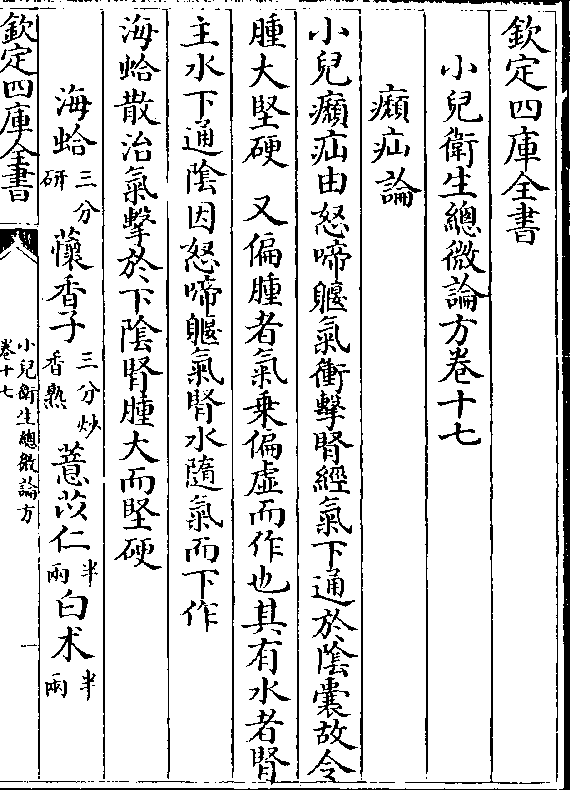 欽定四庫全書
小兒衛生總微論方卷十七
癩疝論
小兒癩疝由怒啼軀氣衝擊腎經氣下通於陰囊故令
腫大堅硬 又偏腫者氣乗偏虛而作也其有水者腎
主水下通陰因怒啼軀氣腎水隨氣而下作
海蛤散治氣擊於下陰腎腫大而堅硬
海蛤三分研 蘹香子三分炒香熟 薏苡仁半兩 白术半兩
欽定四庫全書
小兒衛生總微論方
卷十七
一